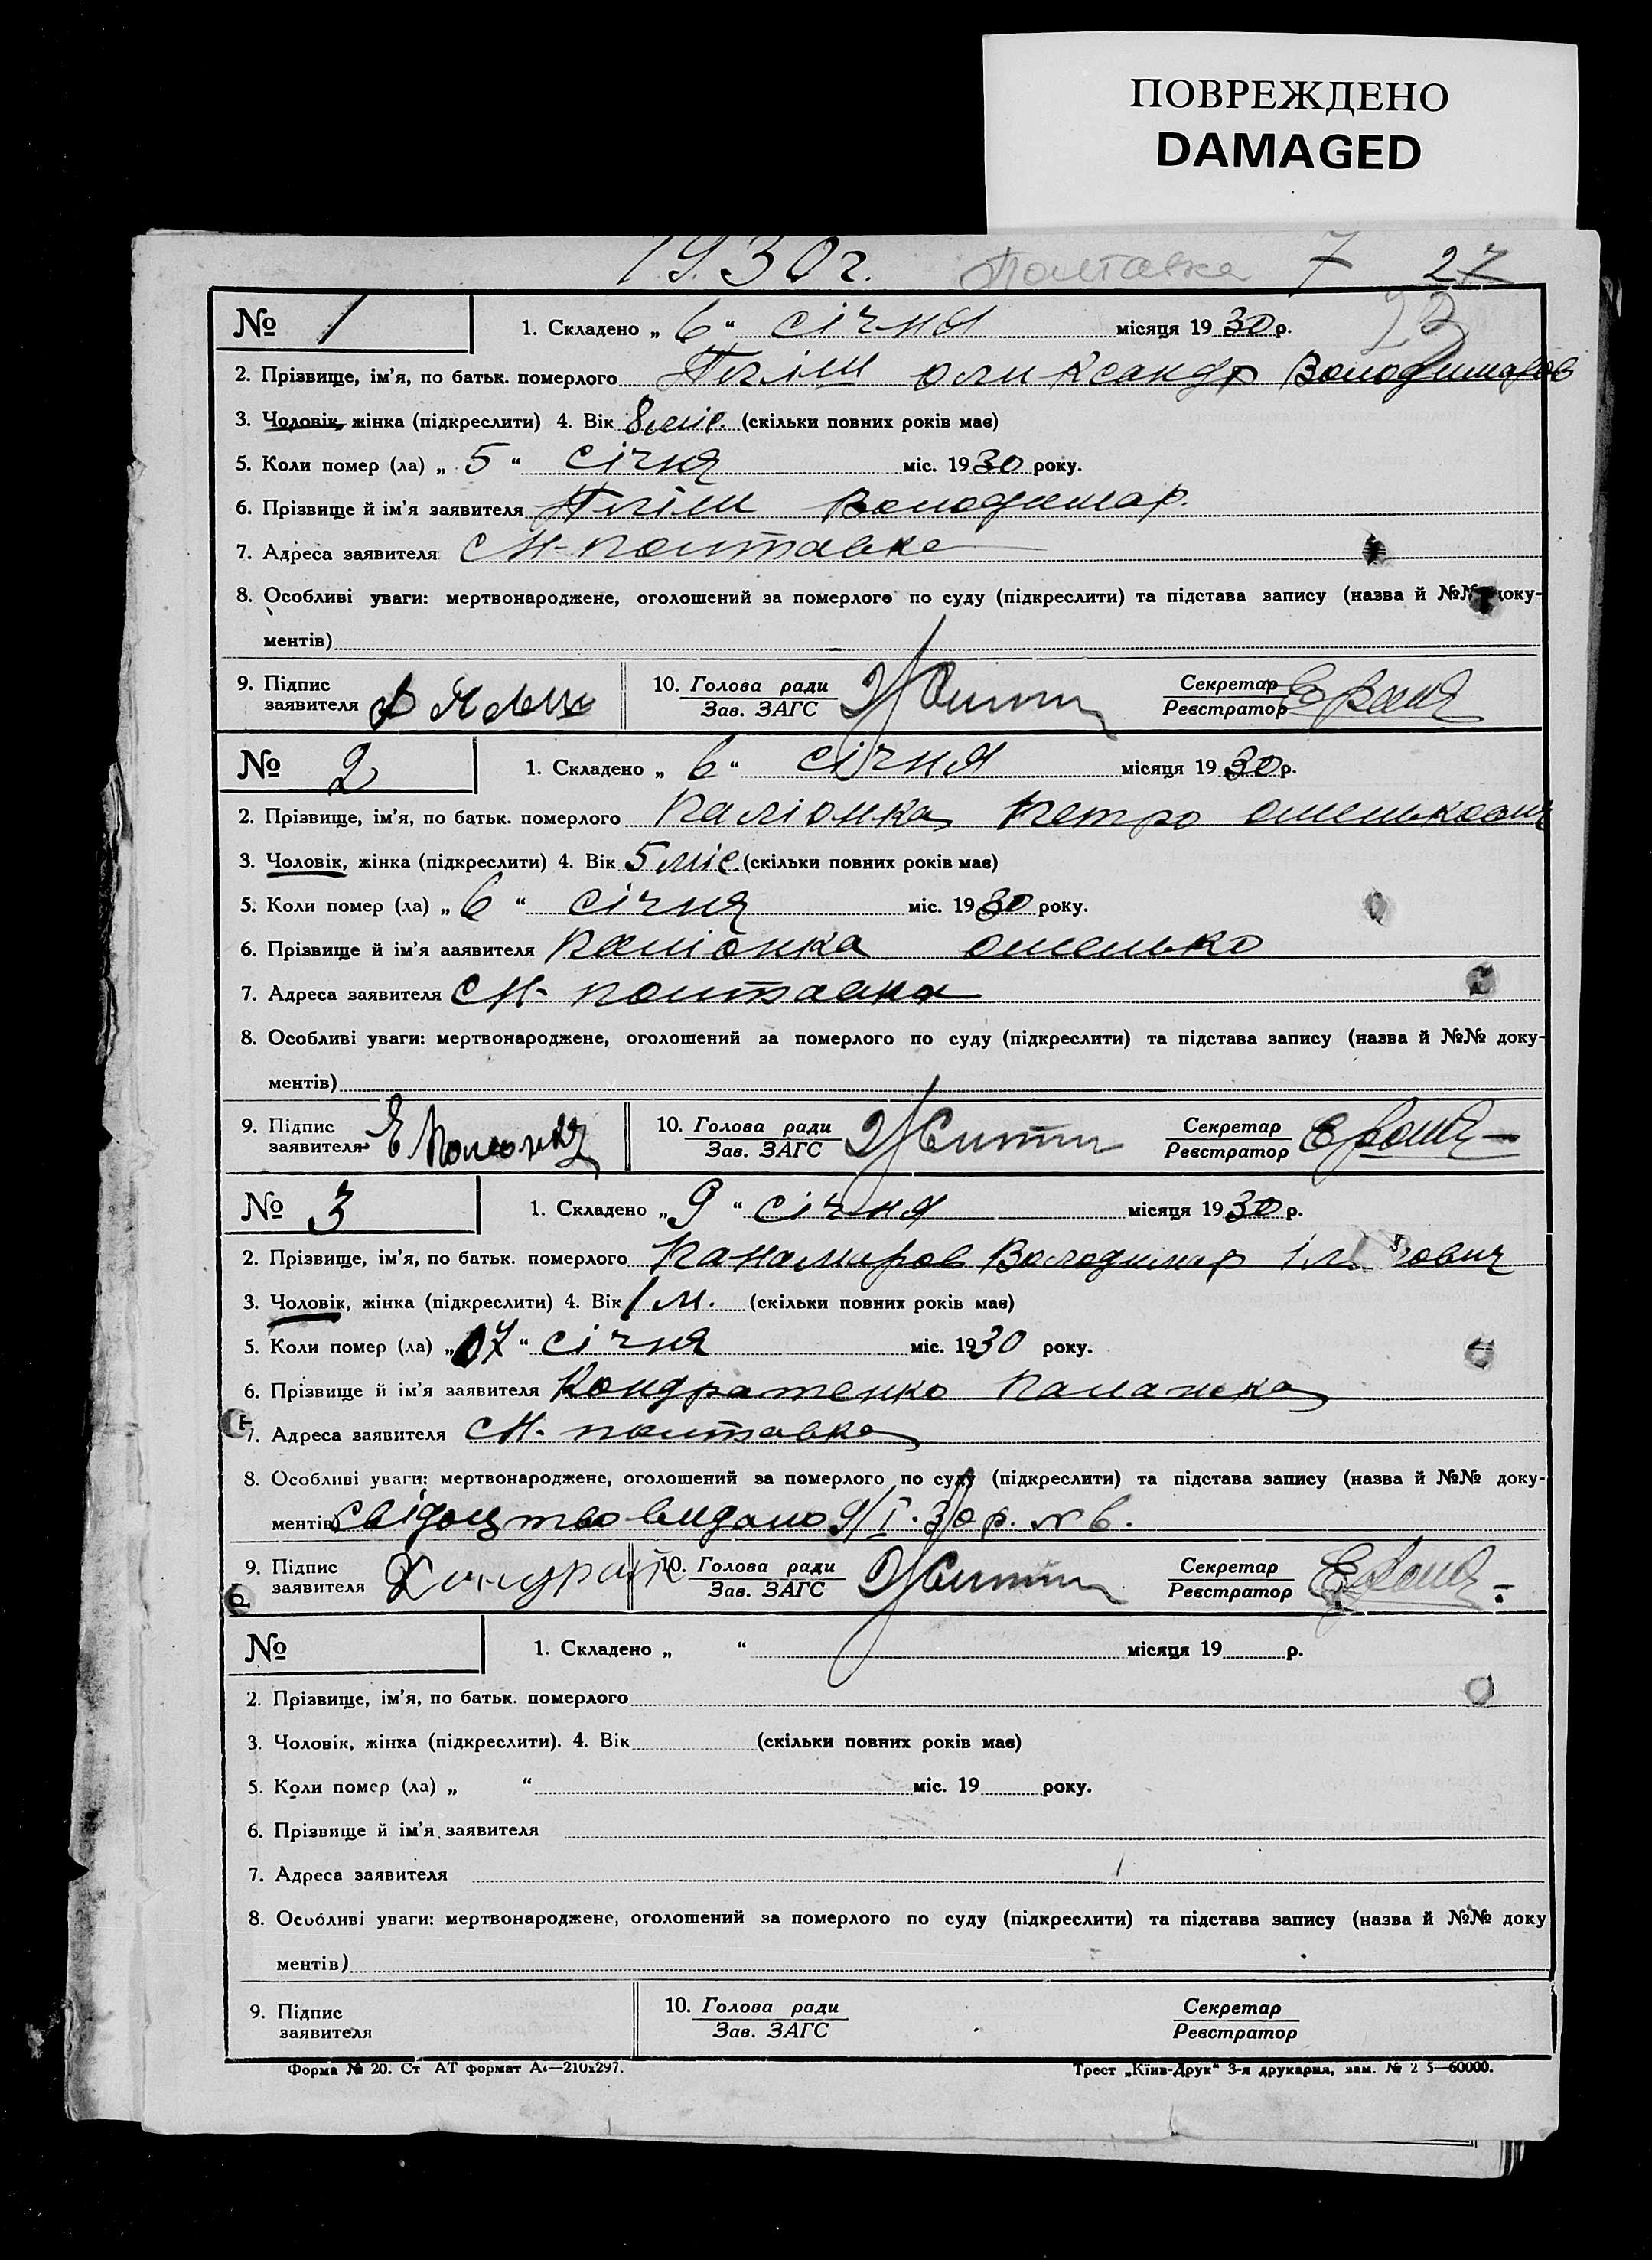 ПОВРЕЖДЕНО
DAMAGED
1930 г. Полтавка 7 27
23
№ 1 1. Складено „ 6 “ січня місяця 19 30 р.
2. Прізвище, ім’я, по батьк. померлого Володимиров
3. Чоловік, жінка (підкреслити) 4. Вік 8 міс. (скільки повних років має)
5. Коли помер (ла) „ 5 “ січня міс. 19 30 року.
6. Прізвище й ім’я заявителя Володимар.
7. Адреса заявителя с. Н-полтавка
8. Особливі уваги: мертвонароджене, оголошений за померлого по суду (підкреслити) та підстава запису (назва й №№ доку-
ментів)
9. Підпис заявителя 10. Голова ради Зав. ЗАГС Секретар Реєстратор
№ 2 1. Складено „ 6 “ січня місяця 19 30 р.
2. Прізвище, ім’я, по батьк. померлого Петро
3. Чоловік, жінка (підкреслити) 4. Вік 5 міс. (скільки повних років має)
5. Коли помер (ла) „ 6 “ січня міс. 19 30 року.
6. Прізвище й ім’я заявителя омелько
7. Адреса заявителя с. Н- полтавка
8. Особливі уваги: мертвонароджене, оголошений за померлого по суду (підкреслити) та підстава запису (назва й №№ доку-
ментів)
9. Підпис заявителя 10. Голова ради Зав. ЗАГС Секретар Реєстратор
№ 3 1. Складено „ 9 “ січня місяця 19 30 р.
2. Прізвище, ім’я, по батьк. померлого Володимир
3. Чоловік, жінка (підкреслити) 4. Вік 1 м. (скільки повних років має)
5. Коли помер (ла) „ 07 “ січня міс. 19 30 року.
6. Прізвище й ім’я заявителя Кондратенко Палажка
7. Адреса заявителя с. Н. полтавка
8. Особливі уваги: мертвонароджене, оголошений за померлого по суду (підкреслити) та підстава запису (назва й №№ доку-
ментів) свідоцтво видано 9/I. 30 р. № 6.
9. Підпис заявителя 10. Голова ради Зав. ЗАГС Секретар Реєстратор
№ 1. Складено „ “ місяця 19 р.
2. Прізвище, ім’я, по батьк. померлого
3. Чоловік, жінка (підкреслити). 4. Вік (скільки повних років має)
5. Коли помер (ла) „ “ міс. 19 року.
6. Прізвище й ім’я заявителя
7. Адреса заявителя
8. Особливі уваги: мертвонароджене, оголошений за померлого по суду (підкреслити) та підстава запису (назва й №№ доку
ментів)
9. Підпис заявителя 10. Голова ради Зав. ЗАГС Секретар Реєстратор
Форма № 20. Ст АТ формат А4—210х297. Трест „Київ-Друк“ 3-я друкарня, зам. № 2 5—60000.